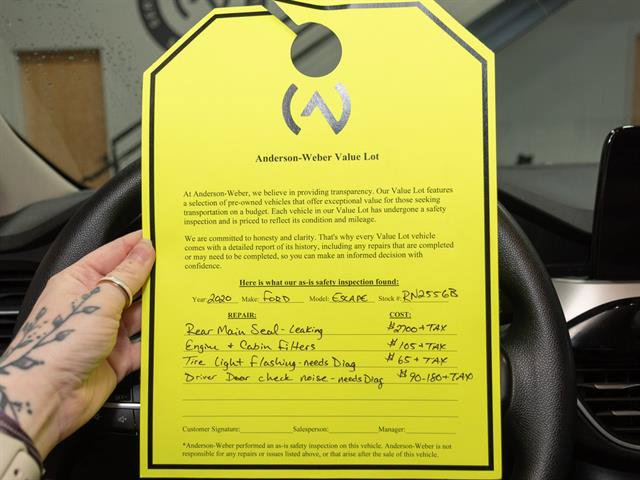 Anderson-Weber Value Lot
At Anderson-Weber, we believe in providing transparency. Our Value Lot features
a selection of pre-owned vehicles that offer exceptional value for those seeking
transportation on a budget. Each vehicle in our Value Lot has undergone a safety
inspection and is priced to reflect its condition and mileage.
We are committed to honesty and clarity. That's why every Value Lot vehicle
comes with a detailed report of its history, including any repairs that are completed
or may need to be completed, so you can make an informed decision with
confidence.
Here is what our as-is safety inspection found:
Year: 2020 Make: FORD Model: ESCAPE Stock #: RN2556B
REPAIR: COST:
Rear Main Seal - Leaking $2700 + TAX
Engine + Cabin filters $105 + TAX
Tire Light flashing - needs Diag $65 + TAX
Driver Door check noise - needs Diag $90-180 + TAX
Customer Signature: Salesperson: Manager:
*Anderson-Weber performed an as-is safety inspection on this vehicle. Anderson-Weber is not
responsible for any repairs or issues listed above, or that arise after the sale of this vehicle.